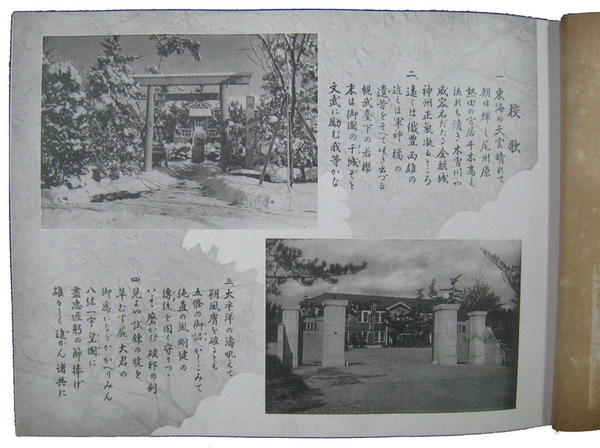 校歌
一、東海の天雲晴れて
朝日輝く尾州原
熱田の宮居千木高く
流れも清き木曽川や
威容名だたる金鯱城
神州正氣凝るところ
二、遠くは織豊両雄の
近くは軍神橘の
遺芳をそへて咲き出づる
観武臺下の若櫻
末は御國の干城ぞと
文武に励む我等かな
三、太平洋の濤吼えて
朔風膚を破るとも
五條の御詔かしこみて
純直の風剛健の
傳統を固く守りつゝ
磨かむ破邪の剣
四、見よや試錬の暁を
草むす屍大君の
御為になどかかへりみん
八紘一宇皇國に
盡忠匪躬の節捧げ
雄々しく 諸共に